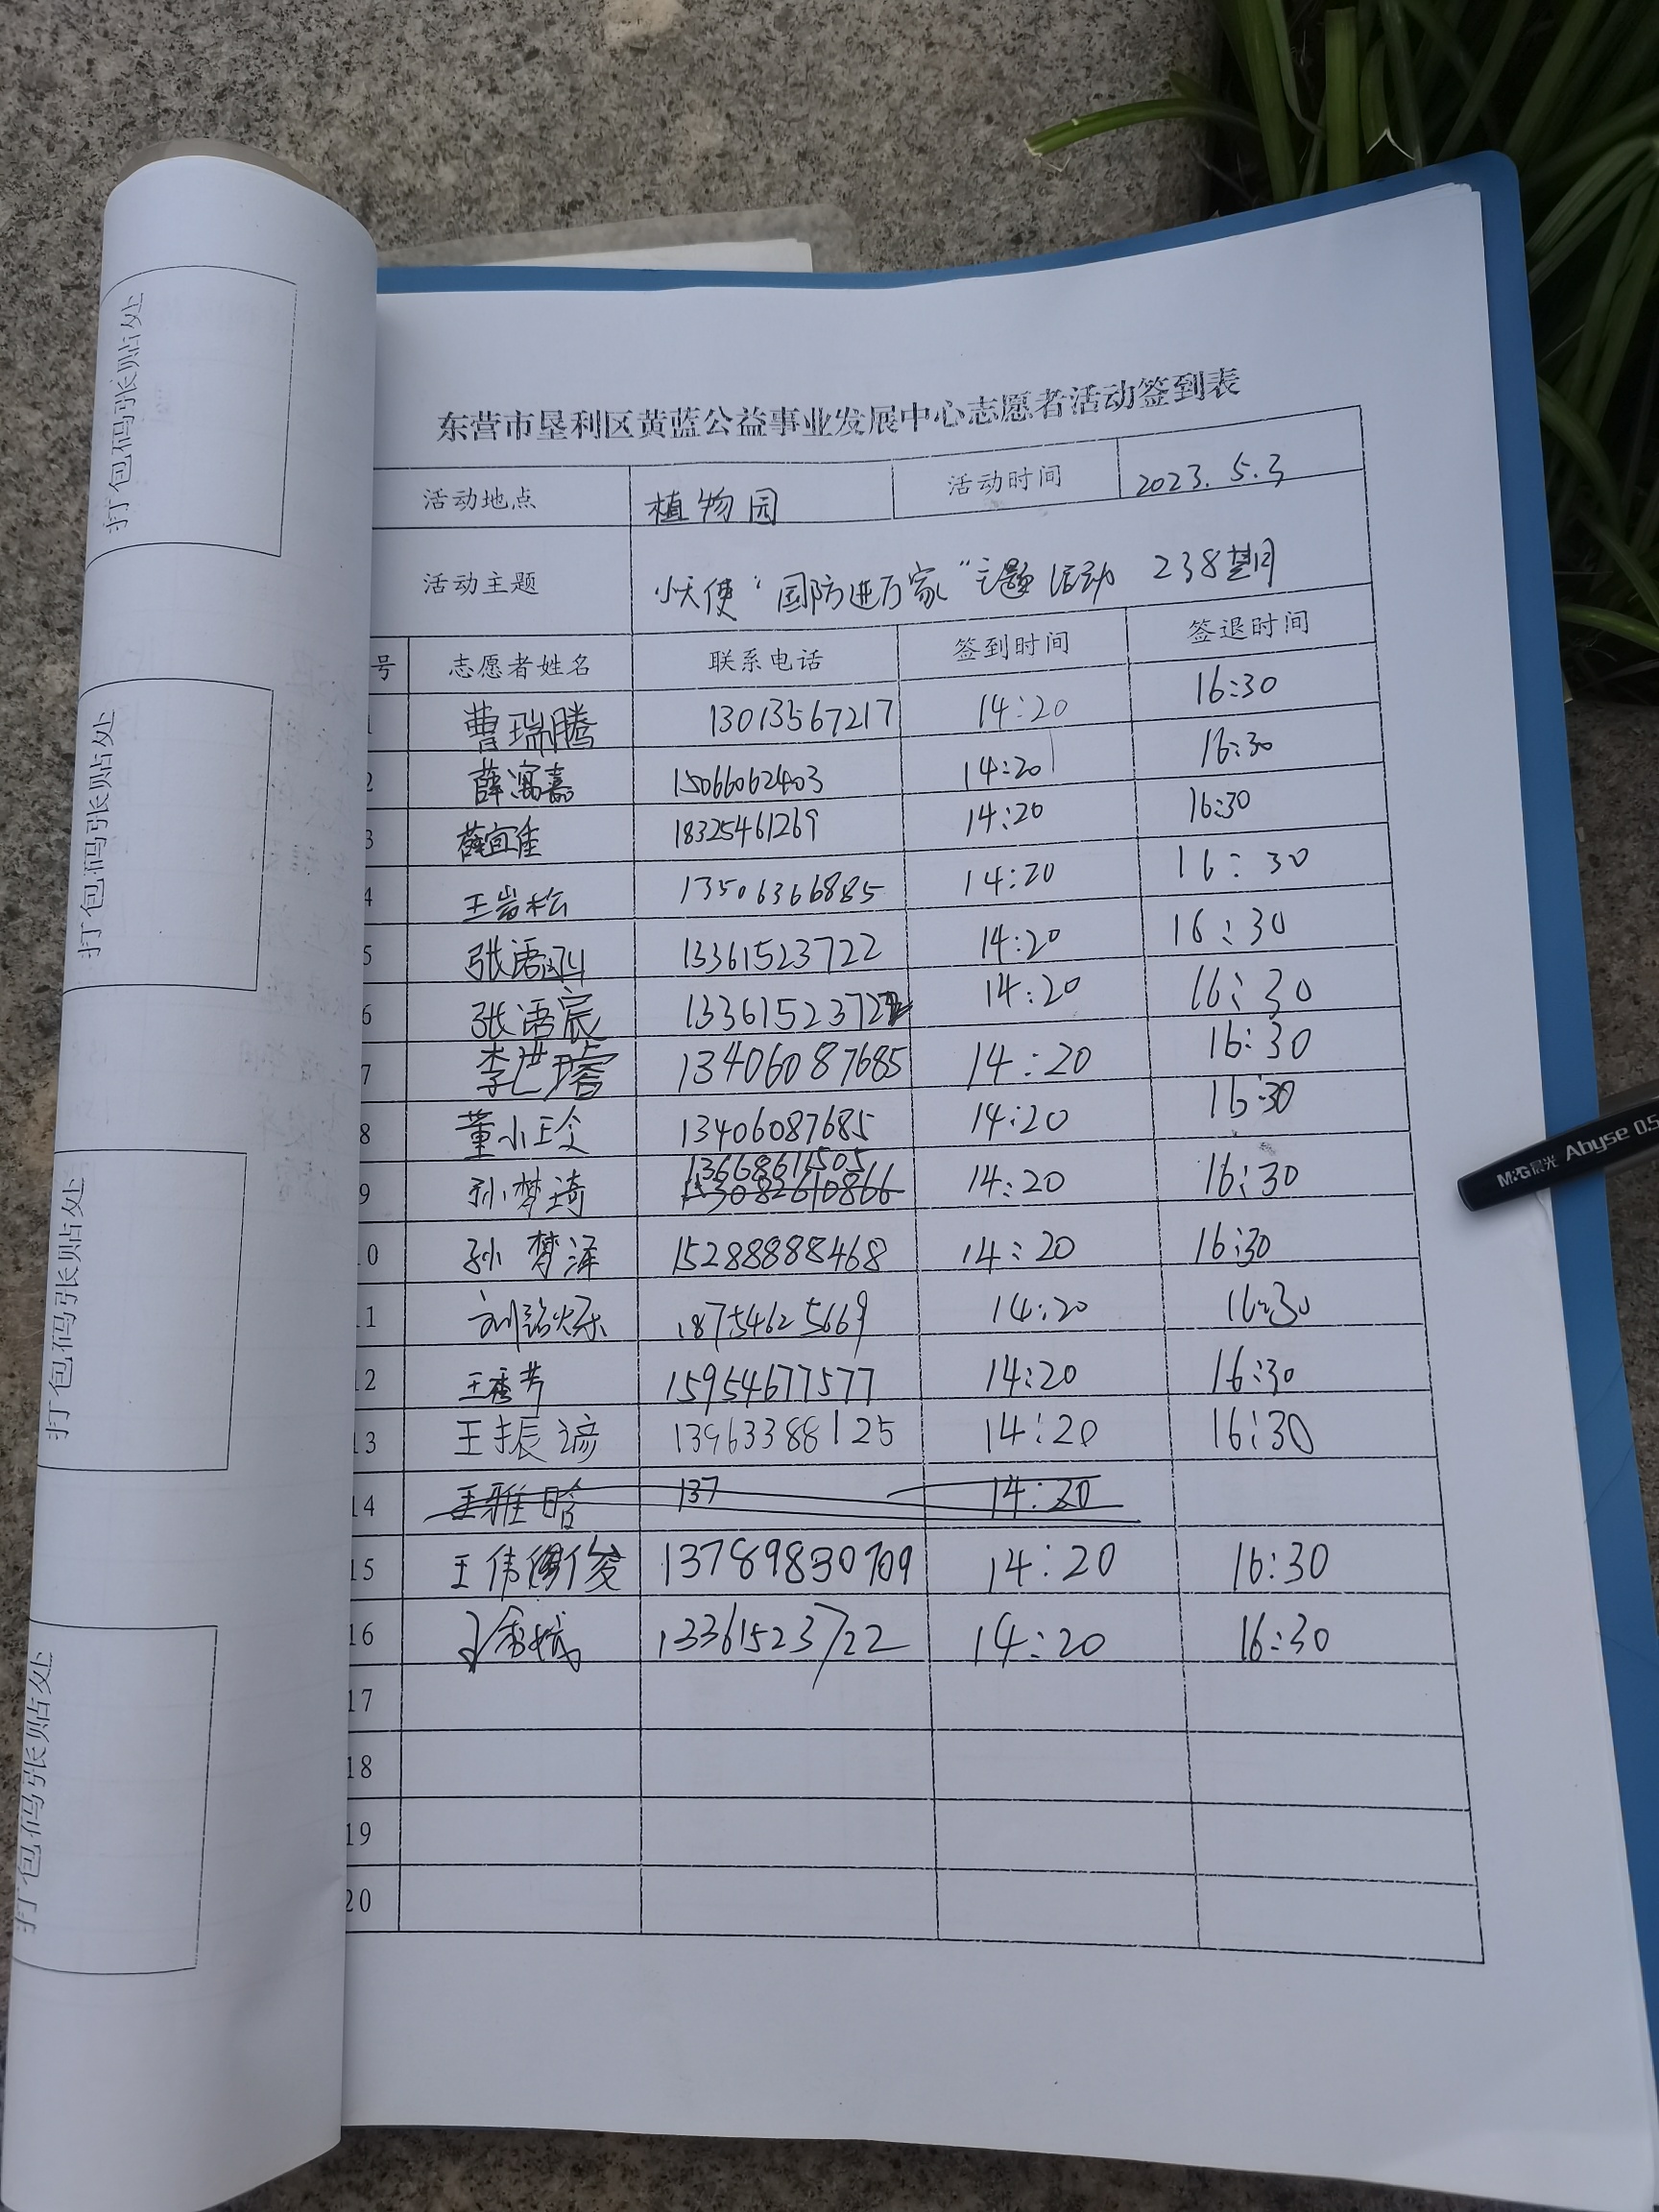 打包码张贴处
打包码张贴处
打包码张贴处
打包码张贴处
东营市垦利区黄蓝公益事业发展中心志愿者活动签到表
活动地点 植物园 活动时间 2023.5.3
活动主题 小天使“国防进万家”主题活动 238期
号 志愿者姓名 联系电话 签到时间 签退时间
1 曹瑞腾 13013567217 14:20 16:30
2 薛寓嘉 15066062403 14:20 16:30
3 薛宜佳 18325461269 14:20 16:30
4 王岩松 13506366885 14:20 16:30
5 张语 13361523722 14:20 16:30
6 张语宸 13361523722 14:20 16:30
7 李 13406087685 14:20 16:30
8 董小玲 13406087685 14:20 16:30
9 孙梦琦 13668611505 14:20 16:30
13082610866
10 孙梦泽 15288888468 14:20 16:30
11 刘铭烁 18754625669 14:20 16:30
12 王秀芳 15954677577 14:20 16:30
13 王振谚 13963388125 14:20 16:30
14 王雅晗 137 14:20
15 王伟俊 13789830709 14:20 16:30
16 13361523722 14:20 16:30
17
18
19
20
M&G晨光 Abyse 0.5